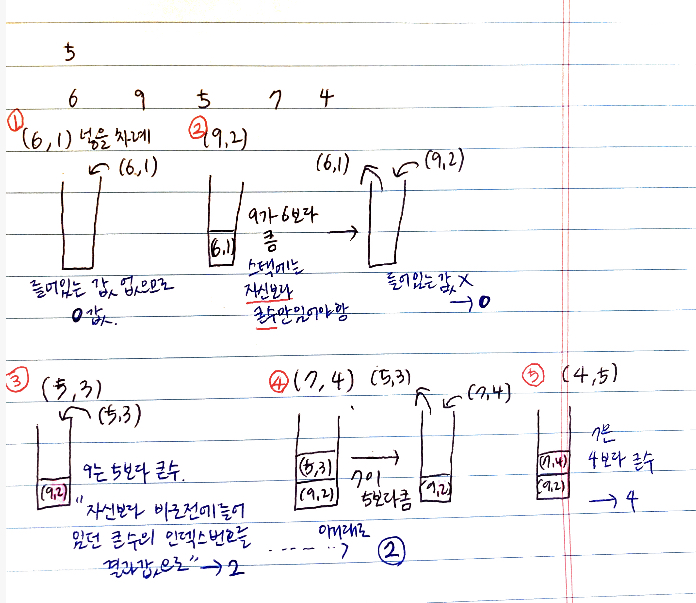 5
6 9 5 7 4
① (6,1) 넣을 차례
(6,1)
들어있는 값 없으므로
0 값.
② (9,2)
(6,1)
9가 6보다
큼
스택에는
자신보다
큰수만 있어야 함
(6,1) (9,2)
들어있는 값 X
→ 0
③ (5,3)
(5,3)
(9,2)
9는 5보다 큰수.
"자신보다 바로전에 들어
있던 큰 수의 인덱스번호를
결과값으로" → 2
④ (7,4) (5,3)
(7,4)
(5,3)
(9,2)
7이
5보다큼
(9,2)
아래대로
②
⑤ (4,5)
(7,4)
(9,2)
7은
4보다 큰수
→ 4